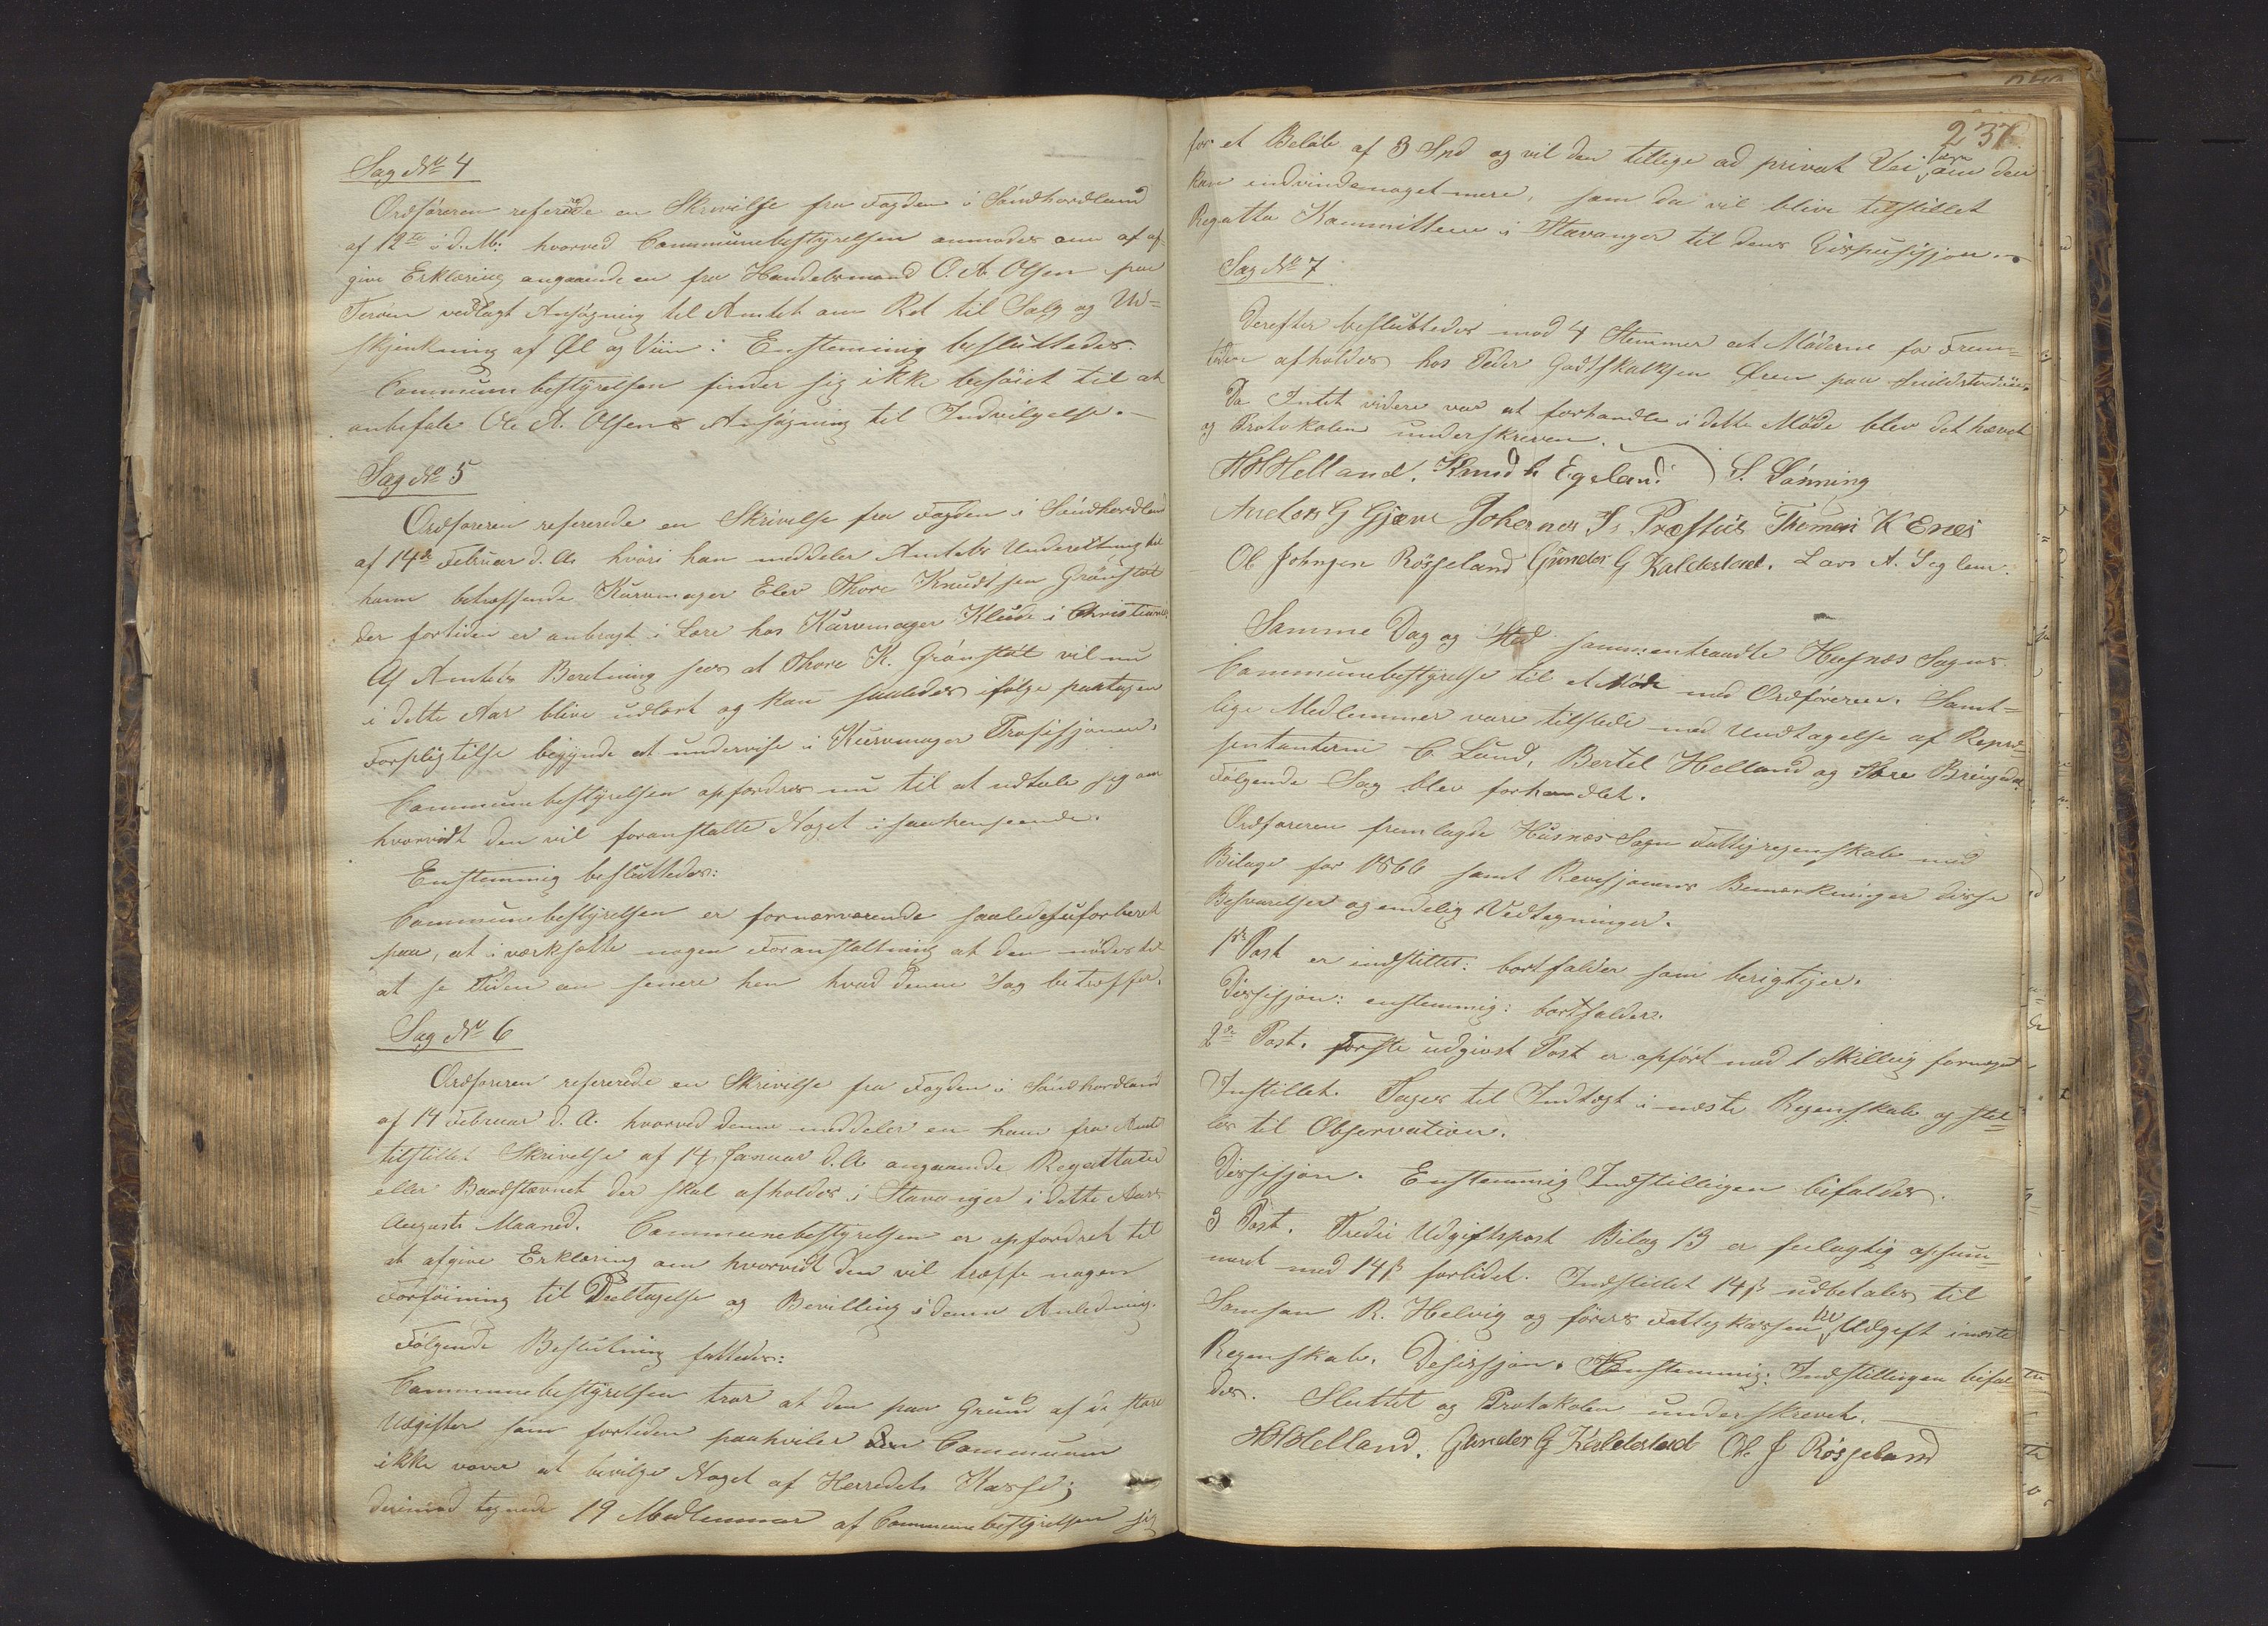 Sag No 4
Ordføreren refererede en Skrivelse fra Fogden i Søndhordland
af 12te i d. M: hvorved Communebestyrelsen anmodes om at af-
give Erklæring angaaende en fra Handelsmand O. A. Olsen paa
Terøen vedlagt Ansøgning til Amtet om Ret til Salg og Ud-
skjenkning af Øl og Viin: Enstemmig besluttedes:
Communebestyrelsen finder sig ikke beføiet til at
anbefale Ole A. Olsens Ansøgning til Indvilgelse.
Sag No 5
Ordføreren refererede en Skrivelse fra Fogden i Søndhordland
af 14de Februar d. A. hvori han meddeler Amtets Underretning til
ham betræffende Kurvmager Elev Thore Knudtsen Grønstøl
der fortiden er anbragt i Lære hos Kurvmager Klude i Christiania
Af Amtets Beretning sees at Thore K. Grønstøl vil nu
i dette Aar blive udlært og kan saaledes ifølge paatagen
Forpligtelse begynde at undervise i Kurvmager Profissjonen.
Communebestyrelsen opfordres nu til at udtale sig om
hvorvidt den vil foranstalte Noget i saa henseende.
Enstemmig besluttedes:
Communebestyrelsen er fornærværende saaledes uforberedt
paa, at iværksætte nogen Foranstaltning at den nødes til
at se Tiden an senere hen hvad denne Sag betræffer.
Sag No 6
Ordføreren refererede en Skrivelse fra Fogden i Søndhordland
af 14 Februar d. A. hvorved denne meddeler en ham fra Amtet
tilstillet Skrivelse af 14 Januar d. A. angaaende Regattaen
eller Baadstævnet der skal afholdes i Stavanger i dette Aars
August Maaned. Communebestyrelsen er opfordret til
at afgive Erklæring om hvorvidt den vil træffe nogen
Forføining til Deeltagelse og Bevilling i denne Anledning.
Følgende Beslutning fattedes:
Communebestyrelsen tror at den paa Grund af de store
Udgifter som fortiden paahviler den Communen
ikke vover at bevilge Noget af Herredets Kasse;
derimod tegnede 19 Medlemmer af Communebestyrelsen sig
237
for et Beløb af 3 Spd og vil den tillige ad privat Vei søge om den
kan indvinde noget mere, som da vil blive tilstillet
Regatta Kommitteen i Stavanger til dens Disposisjon.
Sag No 7
Derefter besluttedes mod 4 Stemmer at Møderne for Frem-
tiden afholdes hos Peder Godtskalksen Øren paa
Da Intet videre var at forhandle i dette Møde blev det hævet
og Protokolen underskreven.
H H Helland. Knud h Egeland S. Sønning
Anders G Gjæve Johannes Is Præstøs Thomas K Enes
Ol Johnsen Røsseland Gunder G Kaldestad. Lars A. Seglem.
Samme Dag og Sted sammentraadte Husnæs Sogns
Communebestyrelse til et Møde med Ordføreren. Samt-
lige Medlemmer vare tilstede med Undtagelse af Repræ-
sentanterne C. Lund, Bertel Helland og Tore Bringedal
Følgende Sag blev forhandlet.
Ordføreren fremlagde Husnæs Sogns Fattigregenskab med
Bilage for 1866 samt Revisjonens Bemærkninger disse
Besvarelser og endelig Vedtegninger.
1ste Post er indstillet: bortfalder som berigtiget.
Dissisjon: enstemmig: bortfalder.
2den Post. Første udgivst Post er opført med 1 Skilling formeget
Instillet. Tages til Indtægt i næste Regenskab og stil-
les til Observation.
Dissisjon. Enstemmig Indstillingen bifaldes.
3 Post. Tredie Udgiftspost Bilag 13 er feilagtig opsum-
meret med 14 ß forlidet. Indstillet 14 ß udbetales til
Samson R. Helvig og føres Fattigkassen til Udgift i næste
Regenskab. Desissjon. Enstemmig: Indstillingen bifal-
des. Sluttet og Protokolen underskrevet.
H H Helland. Gunder G Kaldestad Ol J Røsseland